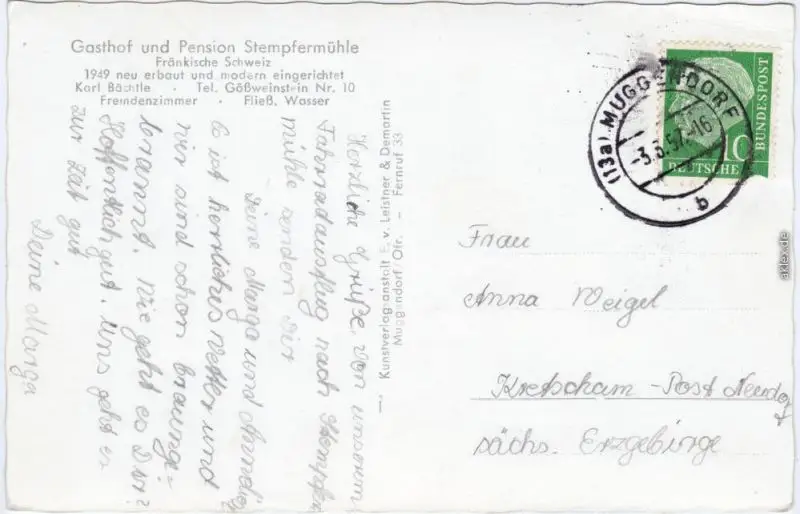 Gasthof und Pension Stempfermühle
Fränkische Schweiz
1949 neu erbaut und modern eingerichtet
Karl Bächtle · Tel. Gößweinstein Nr. 10
Fremdenzimmer · Fließ. Wasser
Herzliche Grüße von unserem
Fahrradausflug nach Stempfer
mühle senden Dir
Deine Marga und
Es ist herrliches Wetter und
wir sind schon braunge=
brannt. Wie geht es Dir?
Hoffentlich gut. Uns geht es
zur Zeit gut
Deine Marga
Kunstverlagsanstalt E. v. Leistner & Demartin
Muggendorf/Ofr. – Fernruf 33
(13a) MUGGENDORF
-3.6.57.-16
b
10
DEUTSCHE
BUNDESPOST
Frau
Anna Weigel
Kretscham - Post Neudorf
sächs. Erzgebirge
aklex.de